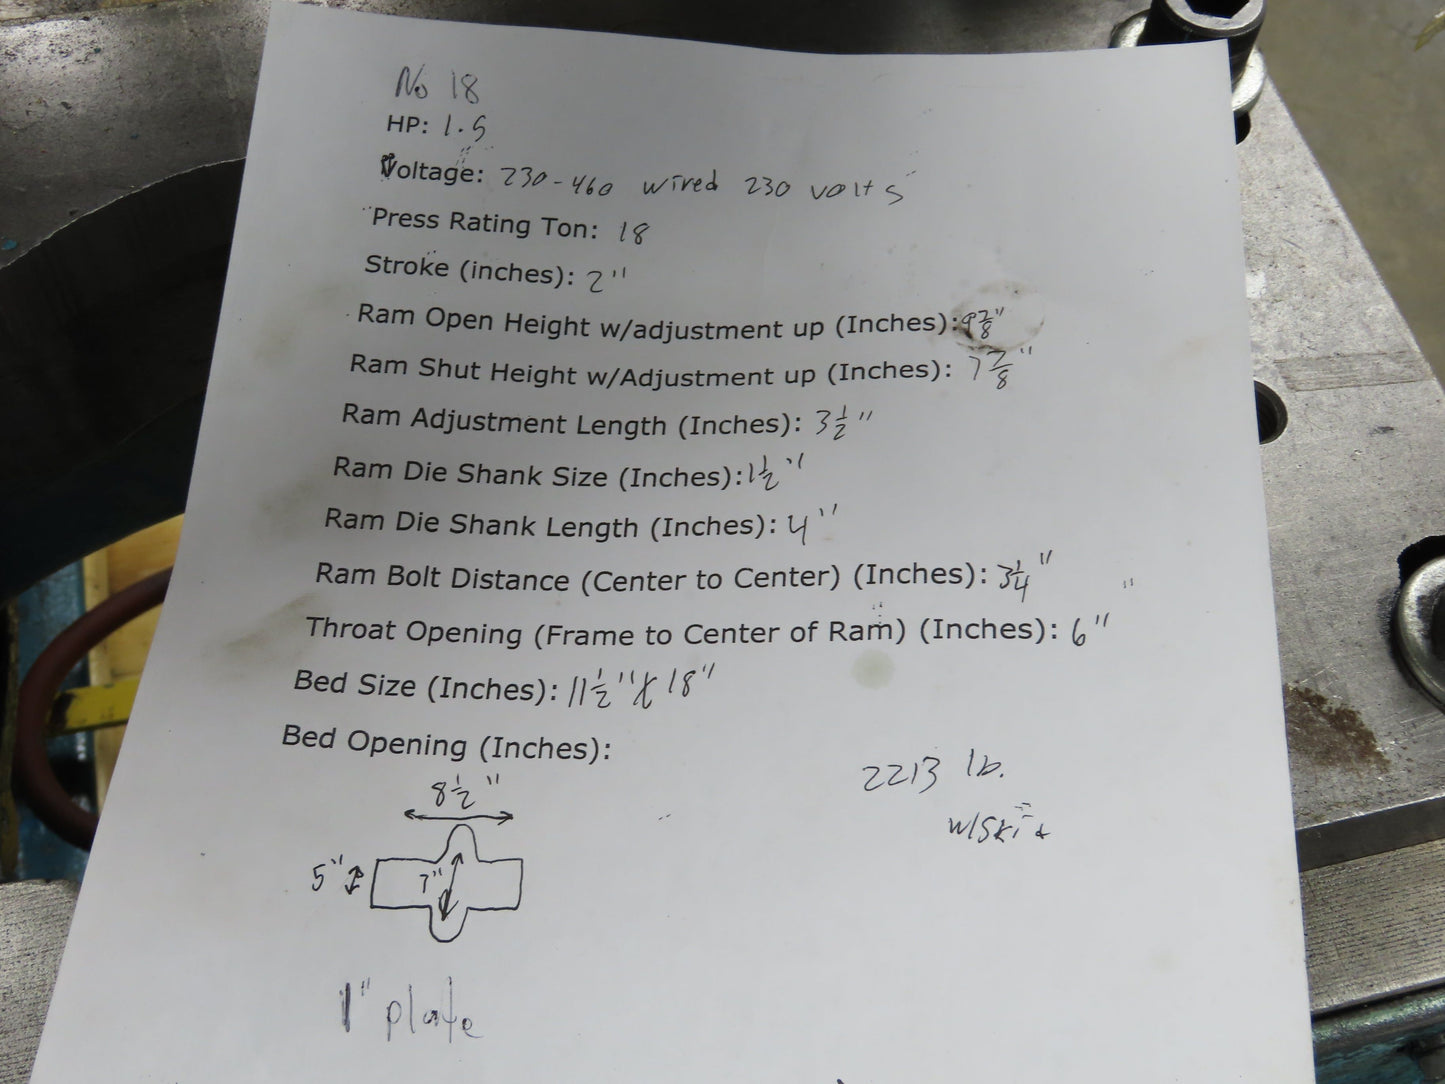 No 18
HP: 1.5
Voltage: 230-460 wired 230 volts
Press Rating Ton: 18
Stroke (inches): 2"
Ram Open Height w/adjustment up (Inches): 9 7/8"
Ram Shut Height w/Adjustment up (Inches): 7 7/8"
Ram Adjustment Length (Inches): 3 1/2"
Ram Die Shank Size (Inches): 1 1/2"
Ram Die Shank Length (Inches): 4"
Ram Bolt Distance (Center to Center) (Inches): 3 1/4"
Throat Opening (Frame to Center of Ram) (Inches): 6"
Bed Size (Inches): 11 1/2" X 18"
Bed Opening (Inches):
2213 lb.
8 1/2"
w/Skid
5"
7"
1" plate